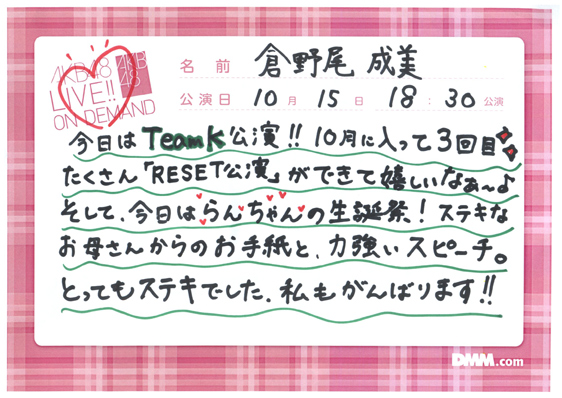 AKB48
LIVE!!
ON DEMAND
AKB
48
名前 倉野尾 成美
公演日 10月 15日 18:30公演
今日は TeamK公演!! 10月に入って3回目
たくさん「RESET公演」ができて嬉しいなぁ〜♪
そして、今日はらんちゃんの生誕祭! ステキな
お母さんからのお手紙と、力強いスピーチ。
とってもステキでした、私もがんばります!!
DMM.com